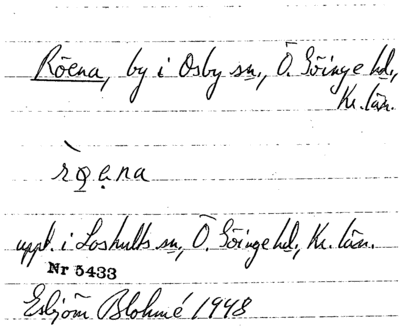 Röena, by i Osby sn., Ö. Göinge hd.,
Kr. län.
rò̱ẹna
uppt. i Loshults sn, Ö. Göinge hd., Kr. län.
Nr 5433
Esbjörn Blohmé 1948